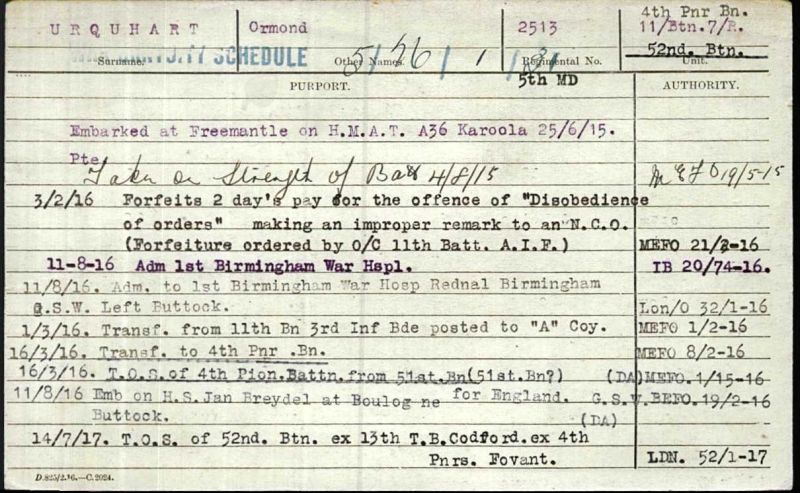 4th Pnr Bn.
URQUHART Ormond 2513 11/Btn.7/R.
SCHEDULE 52nd. Btn.
Surname. Other Names. Regimental No. Unit.
5th MD
PURPORT. AUTHORITY.
Embarked at Freemantle on H.M.A.T. A36 Karoola 25/6/15.
Pte
Taken on Strength of Batt 4/8/15 19/5-15
3/2/16 Forfeits 2 day's pay for the offence of "Disobedience
of orders" making an improper remark to an N.C.O.
(Forfeiture ordered by O/C 11th Batt. A.I.F.) MEFO 21/2-16
11-8-16 Adm 1st Birmingham War Hspl. IB 20/74-16.
11/8/16. Adm. to 1st Birmingham War Hosp Rednal Birmingham
G.S.W. Left Buttock. Lon/O 32/1-16
1/3/16. Transf. from 11th Bn 3rd Inf Bde posted to "A" Coy. MEFO 1/2-16
16/3/16. Transf. to 4th Pnr .Bn. MEFO 8/2-16
16/3/16. T.O.S. of 4th Pion.Battn.from 51st.Bn(51st.Bn?) (DA)MEFO.1/15-16
11/8/16 Emb on H.S.Jan Breydel at Boulogne for England. G.S.W. BEFO.19/2-16
Buttock. (DA)
14/7/17. T.O.S. of 52nd. Btn. ex 13th T.B.Codford.ex 4th
Pnrs. Fovant. LDN. 52/1-17
D.825/2.16.—C.2024.